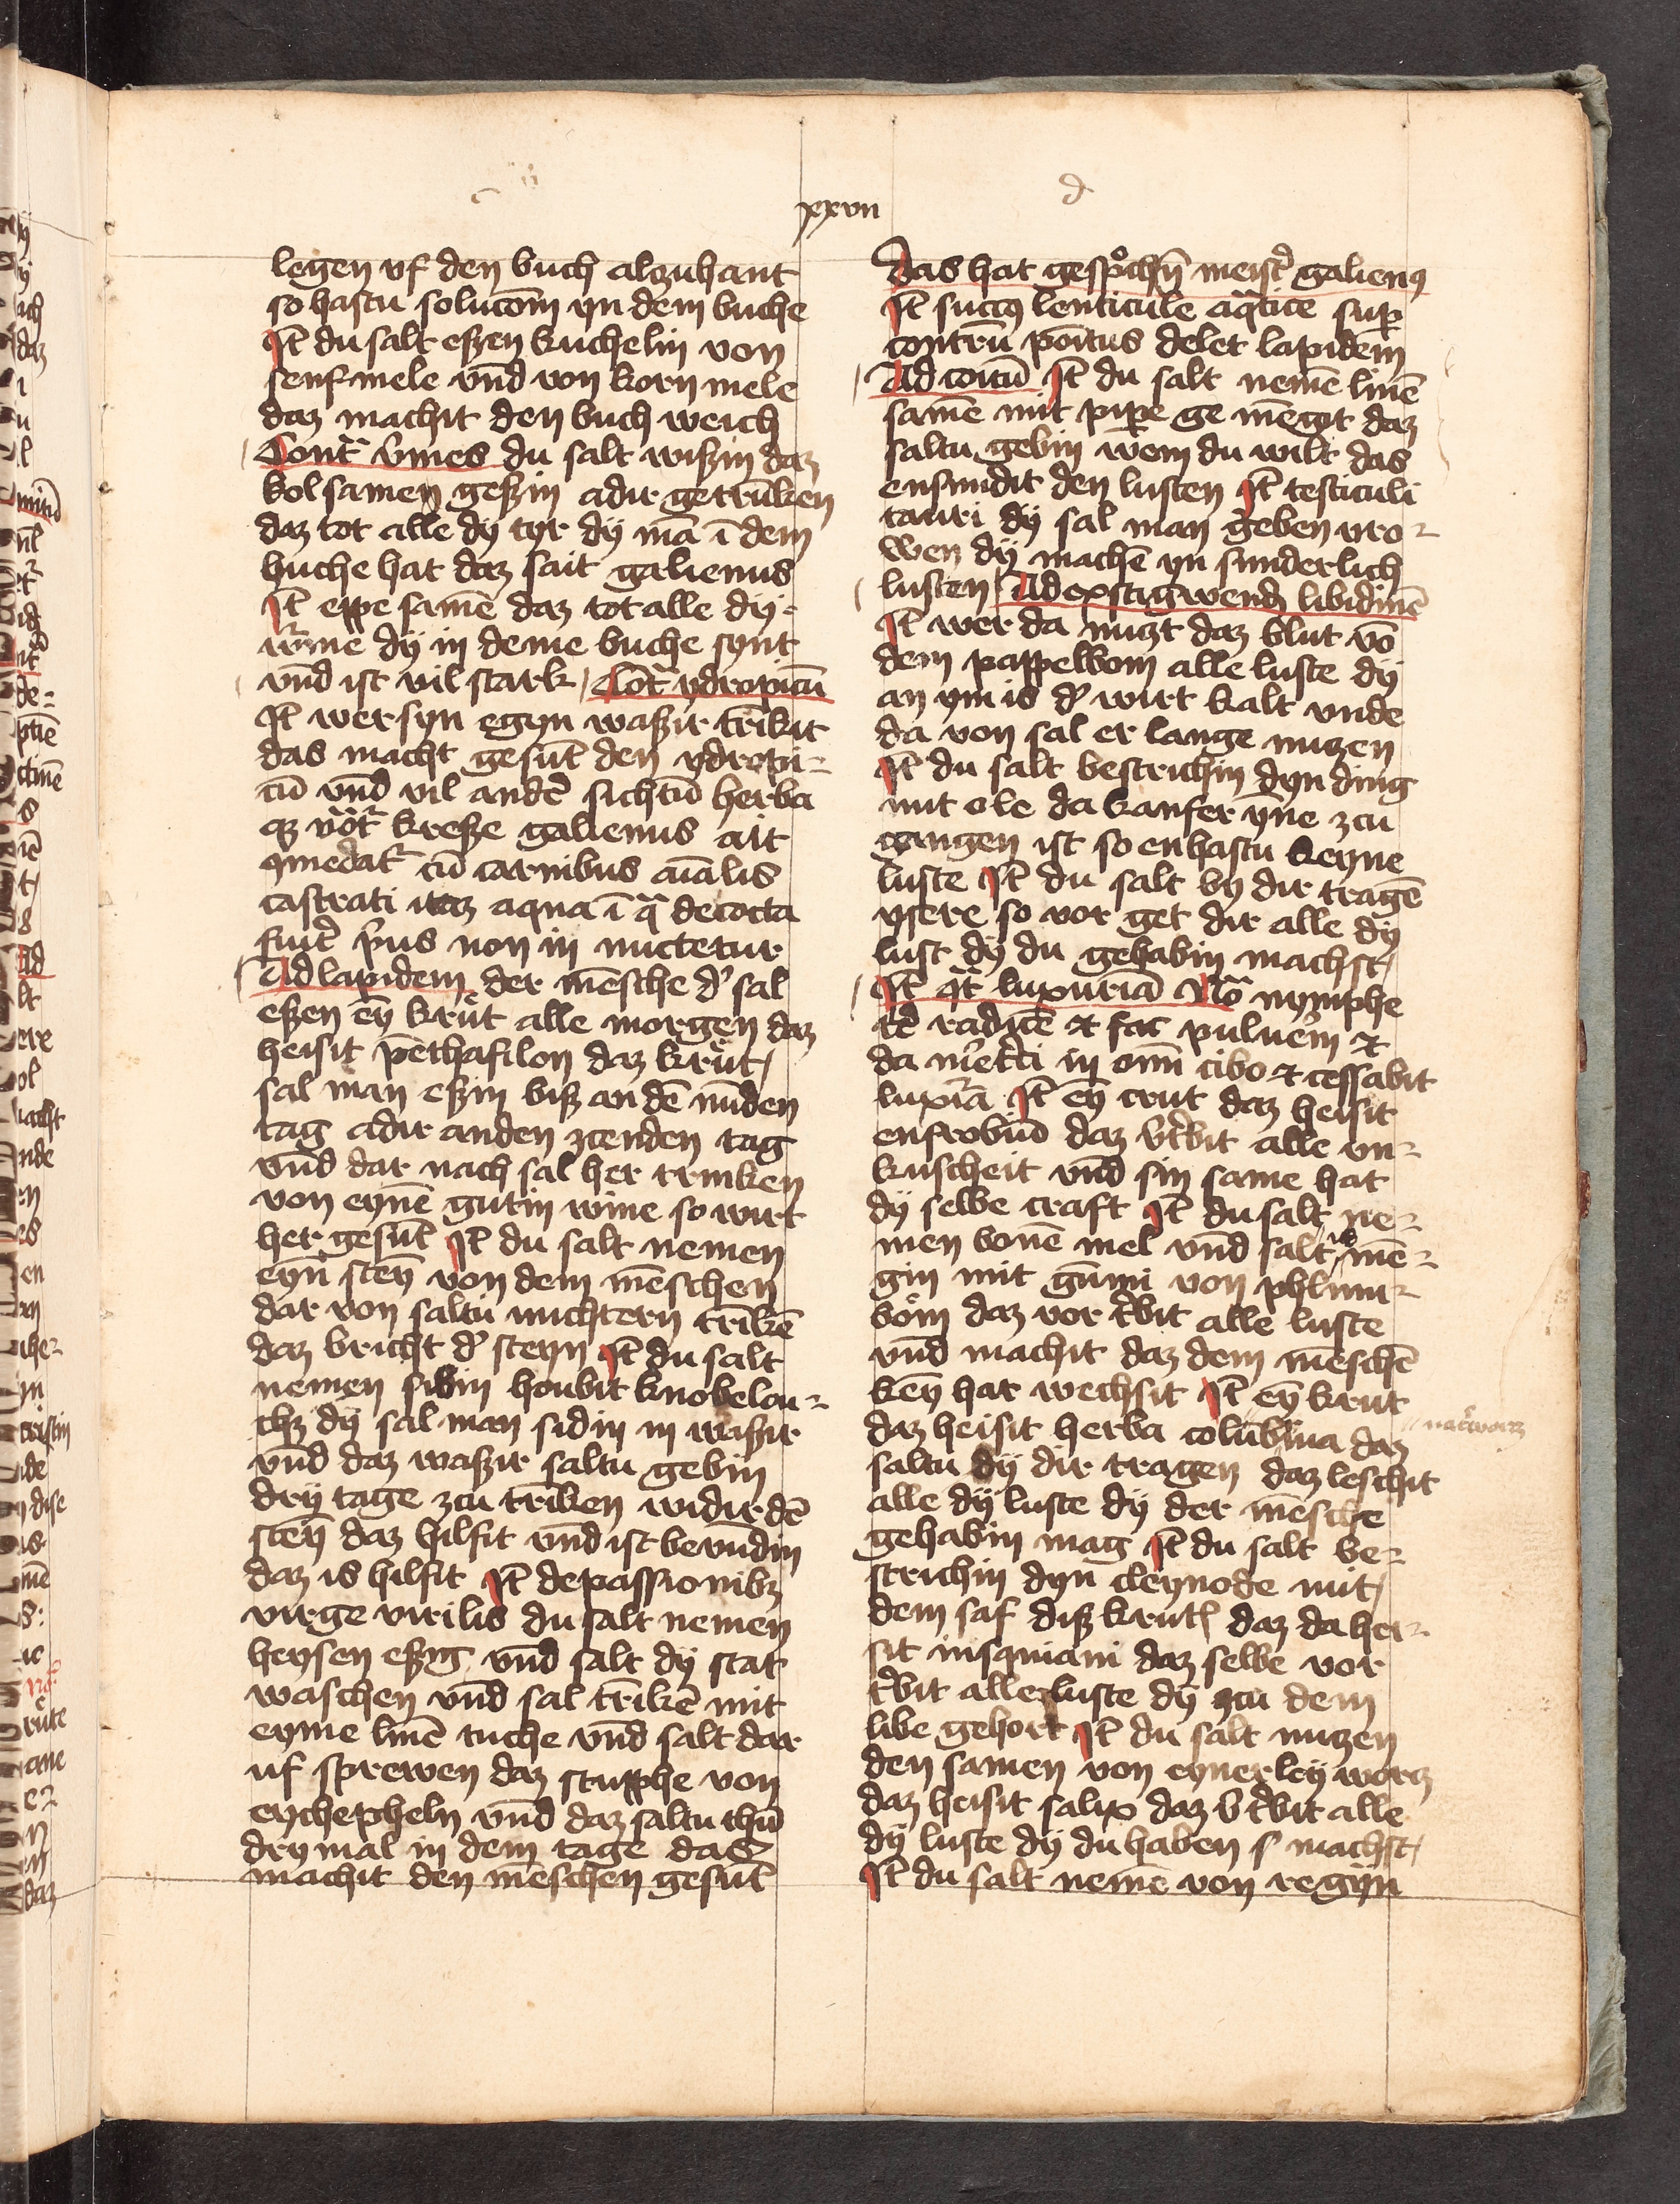 xxvii
d
legen vf den buch alczuhant
so hastu solucōm yn dem buche
Jt̄ du salt eßzen kuchelin von
senf mele vnd von korn mele
daz machit den buch weich
Contͣ v̓mes du salt wißin daz
kol samen geßin adir getrūken
daz tot alle dy tyr dÿ mā ī dem
buche hat daz sait galienus
Jt̄ eppe samē daz tot alle dÿ
worme dÿ in deme buche synt
vnd ist vil stark Cōtͣ ydropicū
Jt̄ wer syn egyn waßir trīkit
das macht gesūt den ydropi-
cū vnd vil ander̄ sichtū herba
q̄ vōtͬ kreße galienus ait
9medatͬ cū carnibus aīalis
castrati aqua ī qͣ decocta
fuit̓ p̓us non in nuctetur
Ad lapidem der mēsche d̓ sal
eßen eȳ krut alle morgen daz
heisit pēthafilon daz krut
sal man eßin biß an dē nūden
tag adir an den zcenden tag
vnd dar nach sal her trinken
von eynē gutin wine so wirt
her gesūt Jt̄ du salt nemen
eyn̄ steȳ von dem mēschen
dar von saltu nuchtern trīkē
daz bricht d̓ steyn Jt̄ du salt
nemen sibin houbit knobelou-
chz dy sal man sidin in waßir
vnd daz waßir saltu gebin
dry tage zcu trīken widir dē
steȳ daz hilfit vnd ist bevūdin
daz is hilfit Jt̄ de passionibꝫ
virge virilis du salt nemen
heysen eßig vnd salt dy stat
waschen vnd sal trīkē mit
eyme linē tuche vnd salt dar
uf sprewen daz stupphe von
eychepheln vnd daz saltu thū
dry mal in dem tage das
machit den mēschen gesūt
das hat gesp̊chn̄ meist̓ galienꝰ
Jt̄ succꝰ lenticule aqͣtice sup̱
contrū po͞itus delet lapidem
Ad coitū Jt̄ du salt nemē linē
samē mit pip̱e ge mēgyt daz
saltu gebin wem du wilt das
ensundit den lusten Jt̄ testiculi
tauri dÿ sal man geben vro-
wen dÿ machē yn sunderlich
lusten Ad exstigwend̄ libidinē
Jt̄ wer da nuczt daz blut vō
dem pappelbom alle luste dÿ
an ym is d̓ wirt kalt vnde
da von sal er lange nuczen
Jt̄ du salt bestrichin dyn ding
mit ole da kanfer yne zcu
gangen ist so enhastu keyne
luste Jt̄ du salt by dir tragē
ysere so vor get dir alle dy
lust dy du gehabin machst
Jt̄ qͣ luxuriā Nō nymphe
rd̓ radicē ⁊ fac puluēm ⁊
da in om̄i cibo ⁊ cessabit
luxͥͬa Jt̄ eȳ crut daz heisit
enfrobūd daz v̓tbit alle vn-
kuscheit vnd sin same hat
dÿ selbe craft Jt̄ du salt ne-
men bonē mel vnd salt is mē-
gin mit gūmi von phlum-
bom daz vor tbit alle luste
vnd machit daz dem mēschē
keȳ har wechsit Jt̄ eȳ krut
daz heisit herba columbina daz
saltu by dir tragen daz leschit
alle dÿ luste dÿ der mēsche
gehabin mag Jt̄ du salt be-
strichin dyn cleynode mit
dem saf diß krutꝭ daz da hei-
sit iusquiami daz selbe vor
t̓bit alle luste dy zcu dem
libe gehort Jt̄ du salt nuczen
den samen von eynerley worcz
daz heisit salix daz v̓ t̓bit alle
dÿ luste dÿ du haben machst
Jt̄ du salt nemē von regyn